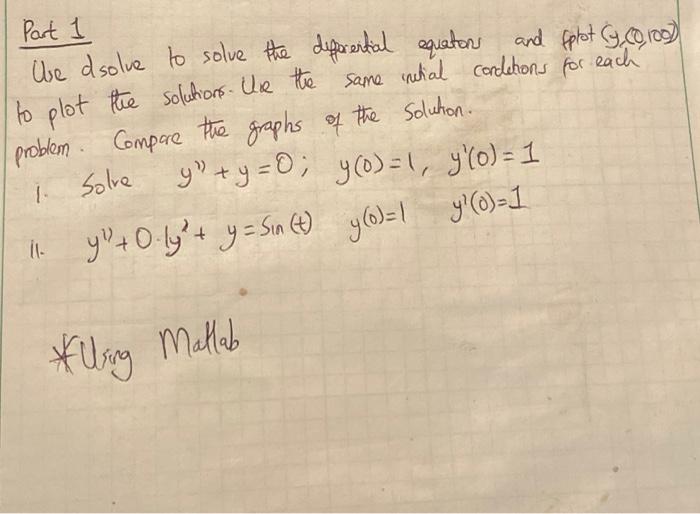 Part 1
Use dsolve to solve the differential equations and fplot (y,(0,100))
to plot the solutions. Use the same initial conditions for each
problem. Compare the graphs of the solution.
1. Solve y'' + y = 0; y(0) = 1, y'(0) = 1
11. y'' + 0.1y' + y = Sin(t) y(0)=1 y'(0)=1
*Using Matlab